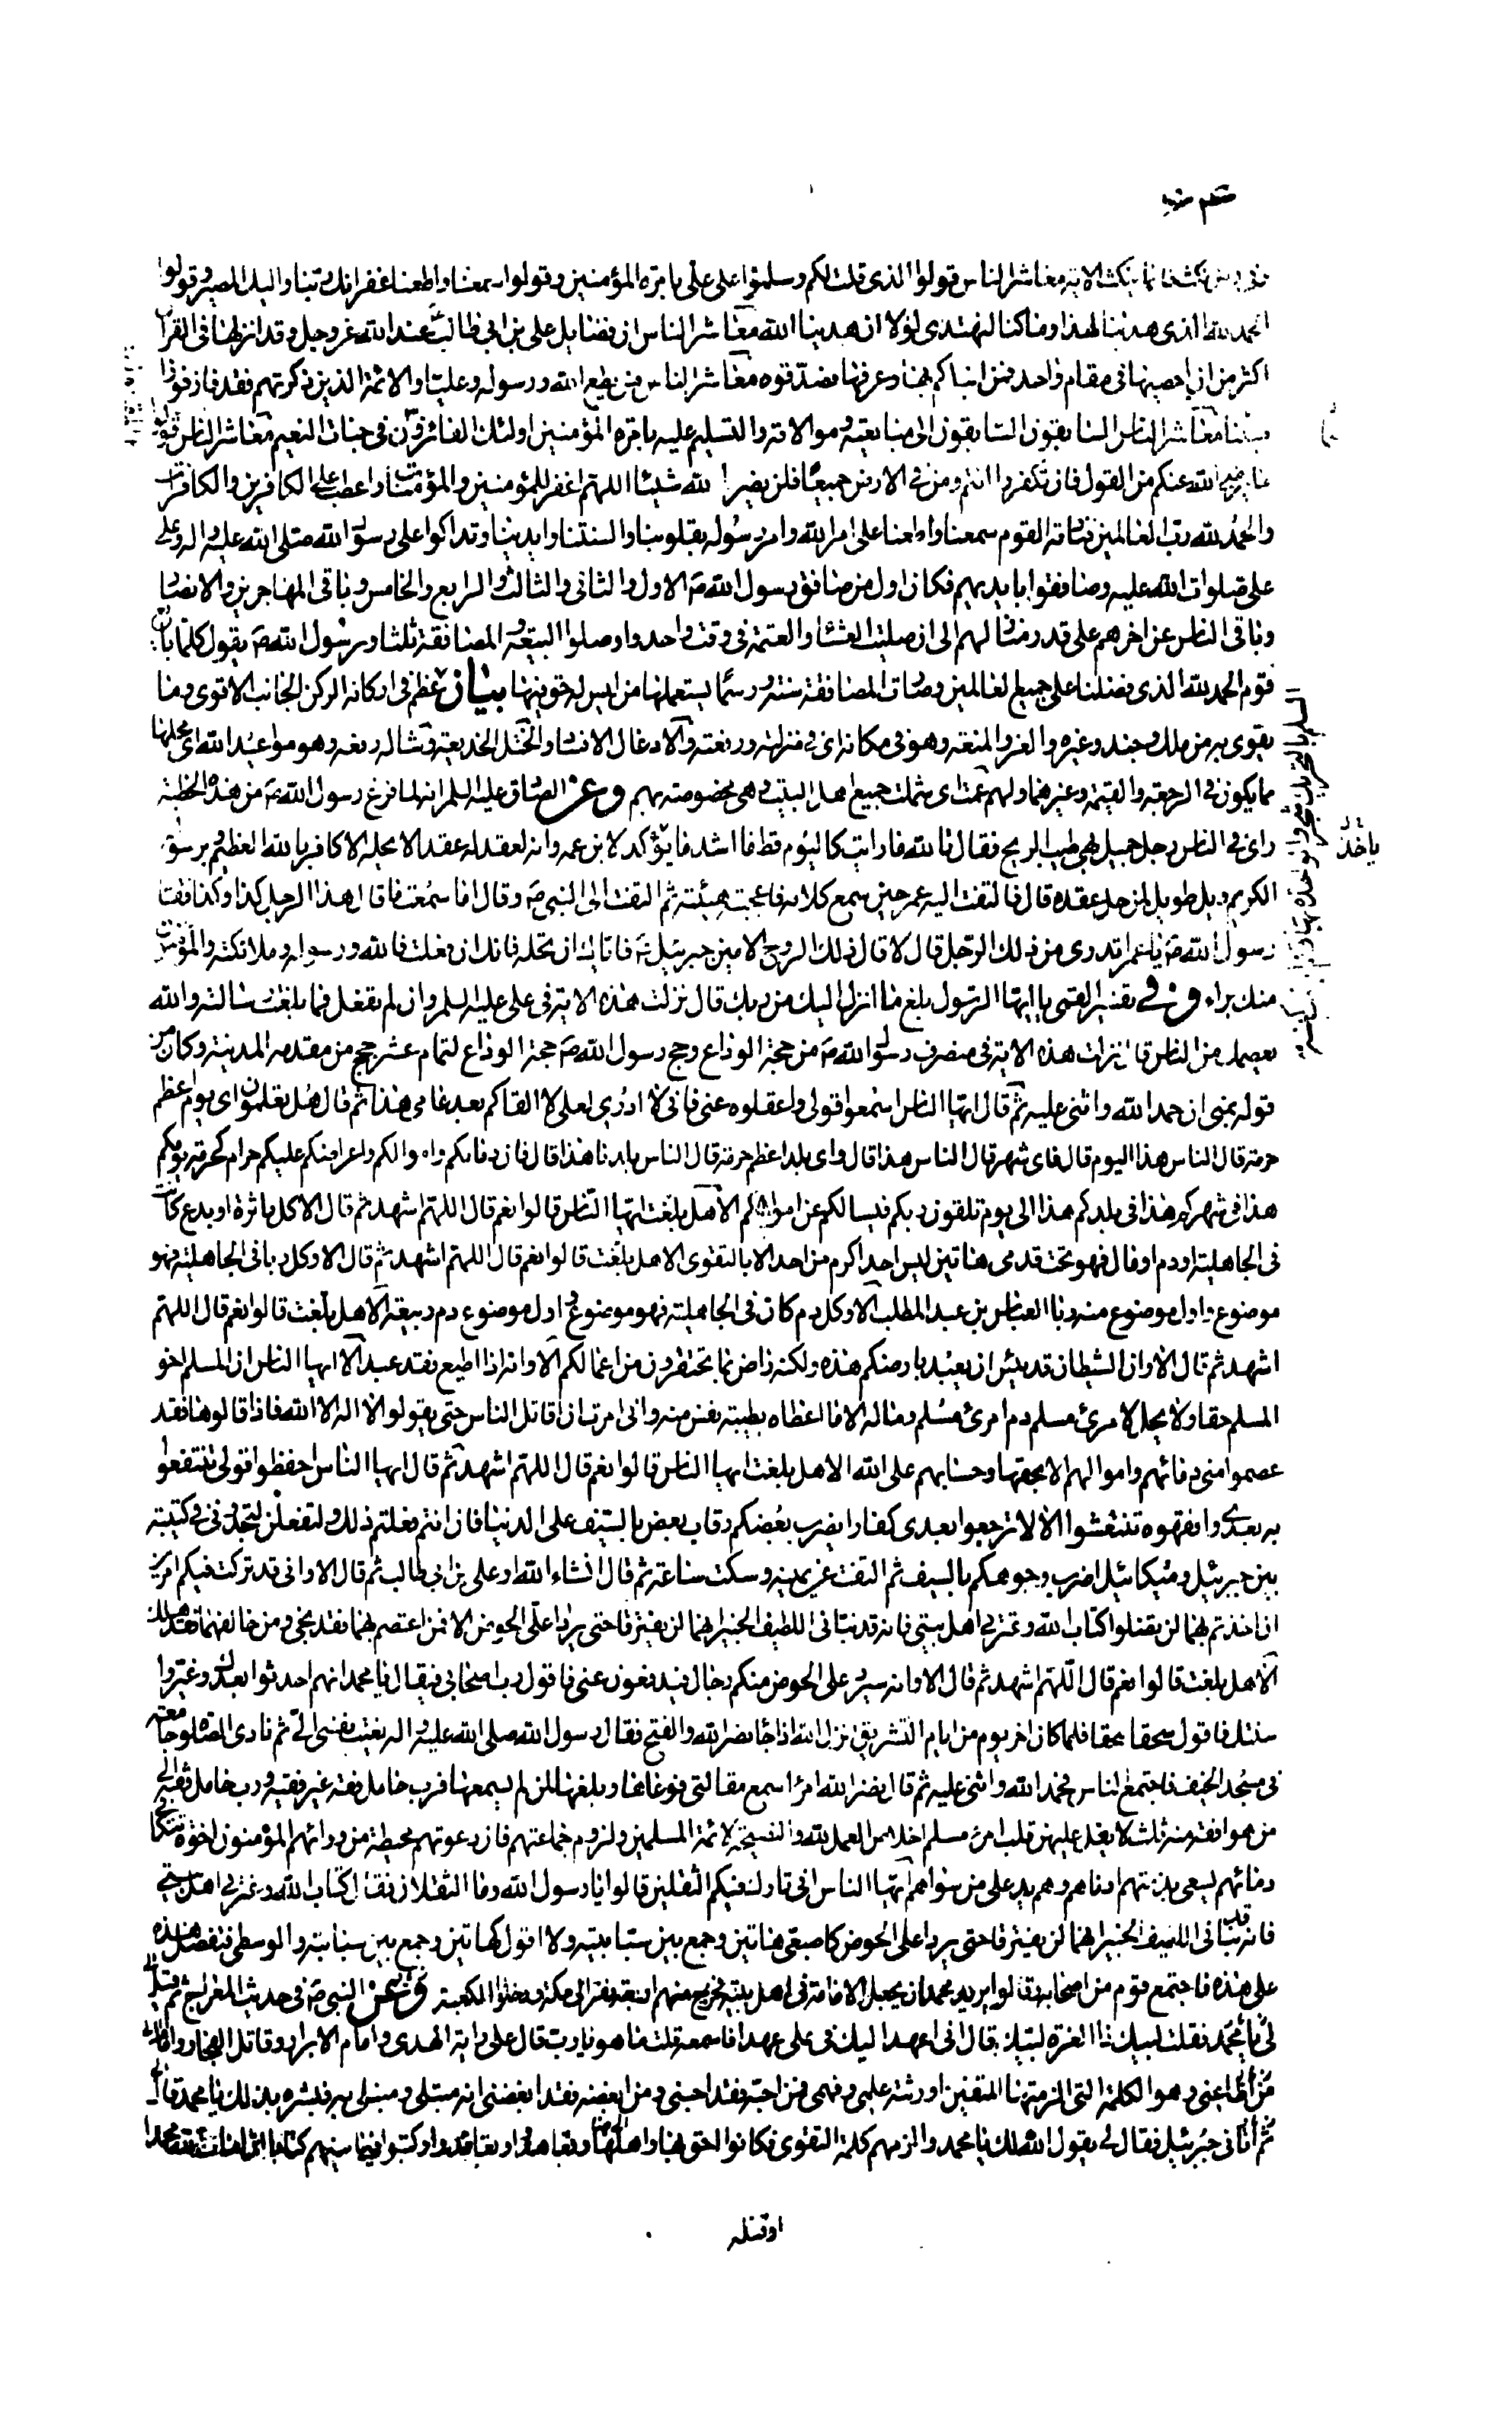 فمن نكث فانما ينكث الاية معاشر الناس قولوا الذى قلت لكم وسلموا على على بامرة المؤمنين وقولوا سمعنا واطعنا غفرانك ربنا واليك المصير وقولوا
الحمد لله الذى هدينا لهذا وماكنا لنهتدى لولا ان هدينا الله معاشر الناس ان فضايل على بن ابى طالب عند الله عز وجل وقد انزلها فى القران
اكثر من ان احصيها فى مقام واحد فمن انباكم بها وعرفها فصدقوه معاشر الناس من يطع الله ورسوله وعليا والائمة الذين ذكرتهم فقد فاز فوزا
مبينا معاشر الناس السابقون السابقون الى مبايعته وموالاته والتسليم عليه بامرة المؤمنين اولئك الفائزون فى جنات النعيم معاشر الناس قولوا
ما يرضى الله عنكم من القول فان تكفروا انتم ومن فى الارض جميعا فلن يضر الله شيئا اللهم اغفر للمؤمنين والمؤمنات واعطب على الكافرين والكافرات
والحمد لله رب العالمين فناداه القوم سمعنا واطعنا على امر الله وامر رسوله بقلوبنا والسنتنا وايدينا وتداكوا على رسول الله صلى الله عليه واله وعلى
على صلوات الله عليه وصافقوا بايديهم فكان اول من صافق رسول الله صَ الاول والثانى والثالث والرابع والخامس وباقى المهاجرين والانصار
وباقى الناس عن اخرهم على قدر منازلهم الى ان صليت العشاء والعتمة فى وقت واحد واوصلوا البيعة والمصافقة ثلثا ورسول الله صَ يقول كلما بايع
قوم الحمد لله الذى فضلنا على جميع العالمين وصارت المصافقة سنة ورسما يستعملها من ليس له حق فيها بيان عظم فى اركانه الركن الجانب الاقوى وما
يقوى به من ملك وجند وغيره والعز والمنعة وهو فى مكانه اى فى منزلته ورفعته والادغال الافساد والختل الخديعة وشاله رفعه وهو مواعيد الله اى محلها
مما يكون فى الرجعة والقيمة وغيرهما ولهم عمت اى شملت جميع اهل البيت وهى مخصوصة بهم وعن الصادق عليه السلم انه لما فرغ رسول الله صَ من هذه الخطبة
راى فى الناس رجل جميل بهى طيب الريح فقال تالله ما رايت كاليوم قط ما اشد ما يؤكد لابن عمه وانه لعقد له عقدا لا يحله الا كافر بالله العظيم وبرسوله
الكريم ويل طويل لمن حل عقده قال فالتفت اليه عمر حين سمع كلامه فاعجبته هيئته ثم التفت الى النبى صَ وقال اما سمعت ما قال هذا الرجل كذا وكذا فقال
رسول الله صَ يا عمر اتدرى من ذلك الرجل قال لا قال ذلك الروح الامين جبرئيل عَ فاياك ان تحله فانك ان فعلت فالله ورسوله وملائكته والمؤمنون
منك براء وفى تفسير القمى يا ايها الرسول بلغ ما انزل اليك من ربك قال نزلت هذه الاية فى على عليه السلم وان لم تفعل فما بلغت رسالته والله
يعصمك من الناس قال نزلت هذه الاية فى منصرف رسول الله صَ من حجة الوداع وحج رسول الله صَ حجة الوداع لتمام عشر حجج من مقدمه المدينة وكان من
قوله بمنى ان حمد الله واثنى عليه ثم قال ايها الناس اسمعوا قولى واعقلوه عنى فانى لا ادرى لعلى لا القاكم بعد عامى هذا ثم قال هل تعلمون اى يوم اعظم
حرمة قال الناس هذا اليوم قال فاى شهر قال الناس هذا قال واى بلد اعظم حرمة قال الناس بلدنا هذا قال فان دماءكم واموالكم واعراضكم عليكم حرام كحرمة يومكم
هذا فى شهركم هذا فى بلدكم هذا الى يوم تلقون ربكم فيسالكم عن اعمالكم الا هل بلغت ايها الناس قالوا نعم قال اللهم اشهد ثم قال الا كل ماثرة او بدع كانت
فى الجاهلية او دم او مال فهو تحت قدمى هاتين ليس احد اكرم من احد الا بالتقوى الا هل بلغت قالوا نعم قال اللهم اشهد ثم قال الا وكل ربا فى الجاهلية فهو
موضوع واول موضوع منه ربا العباس بن عبد المطلب الا وكل دم كان فى الجاهلية فهو موضوع واول موضوع دم ربيعة الا هل بلغت قالوا نعم قال اللهم
اشهد ثم قال الا وان الشيطان قد يئس ان يعبد بارضكم هذه ولكنه راض بما تحتقرون من اعمالكم الا وانه اذا اطيع فقد عبد الا ايها الناس ان المسلم اخو
المسلم حقا ولا يحل لامرئ مسلم دم امرئ مسلم وماله الا ما اعطاه بطيبة نفس منه وانى امرت ان اقاتل الناس حتى يقولوا لا اله الا الله فاذا قالوها فقد
عصموا منى دمائهم واموالهم الا بحقها وحسابهم على الله الا هل بلغت ايها الناس قالوا نعم قال اللهم اشهد ثم قال ايها الناس احفظوا قولى تنتفعوا
به بعدى وافقهوه تنتعشوا الا لا ترجعوا بعدى كفارا يضرب بعضكم رقاب بعض بالسيف على الدنيا فان انتم فعلتم ذلك ولتفعلن لتجدونى فى كتيبة
بين جبرئيل وميكائيل اضرب وجوهكم بالسيف ثم التفت عن يمينه وسكت ساعة ثم قال انشاء الله او على بن ابى طالب ثم قال الا وانى قد تركت فيكم امرين
ان اخذتم بهما لن تضلوا كتاب الله وعترتى اهل بيتى فانه قد نبانى اللطيف الخبير انهما لن يفترقا حتى يردا على الحوض الا فمن اعتصم بهما فقد نجى ومن خالفهما فقد هلك
الا هل بلغت قالوا نعم قال اللهم اشهد ثم قال الا وانه سيرد على الحوض منكم رجال فيدفعون عنى فاقول رب اصحابى فيقال يا محمد انهم احدثوا بعدك وغيروا
سنتك فاقول سحقا سحقا فلما كان اخر يوم من ايام التشريق نزل الله اذا جاء نصر الله والفتح فقال رسول الله صلى الله عليه واله نعيت الى نفسى ثم نادى الصلوة جامعة
فى مسجد الخيف فاجتمع الناس فحمد الله واثنى عليه ثم قال نضر الله امرءا سمع مقالتى فوعاها وبلغها لمن لم يسمعها فرب حامل فقه غير فقيه ورب حامل فقه الى
من هو افقه منه ثلث لا يغل عليهن قلب امرئ مسلم اخلاص العمل لله والنصيحة لائمة المسلمين ولزوم جماعتهم فان دعوتهم محيطة من ورائهم المؤمنون اخوة تتكافى
دمائهم يسعى بذمتهم ادناهم وهم يد على من سواهم ايها الناس انى تارك فيكم الثقلين قالوا يا رسول الله وما الثقلان فقال كتاب الله وعترتى اهل بيتى
فانه قد نبانى اللطيف الخبير انهما لن يفترقا حتى يردا على الحوض كاصبعى هاتين وجمع بين سبابتيه ولا اقول كهاتين وجمع بين سبابته والوسطى فتفضل هذه
على هذه فاجتمع قوم من اصحابه وقالوا يريد محمد ان يجعل الامامة فى اهل بيته فخرج منهم اربعة نفر الى مكة ودخلوا الكعبة وعن النبى صَ فى حديث المعراج ثم قيل
لى يا محمد فقلت لبيك ذا العزة لبيك قال انى اعهد اليك فى على عهدا فاسمعه قلت ما هو يا رب قال على راية الهدى وامام الابرار وقاتل الفجار وامام
من اطاعنى وهو الكلمة التى الزمتها المتقين اورثته علمى وفهمى فمن احبه فقد احبنى ومن ابغضه فقد ابغضنى انه مبتلى ومبتلى به فبشره بذلك يا محمد قال
ثم اتانى جبرئيل فقال لى يقول الله لك يا محمد والزمهم كلمة التقوى وكانوا احق بها واهلها وتعاهدوا وتعاقدوا وكتبوا فيما بينهم كتابا
او قتله